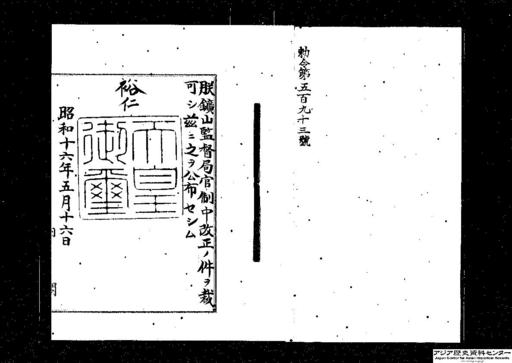 勅令第五百九十三號
朕鑛山監督局官制中改正ノ件ヲ裁
可シ茲ニ之ヲ公布セシム
裕仁
天皇御璽
昭和十六年五月十六日
内閣
アジア歴史資料センター
Japan Center for Asian Historical Records